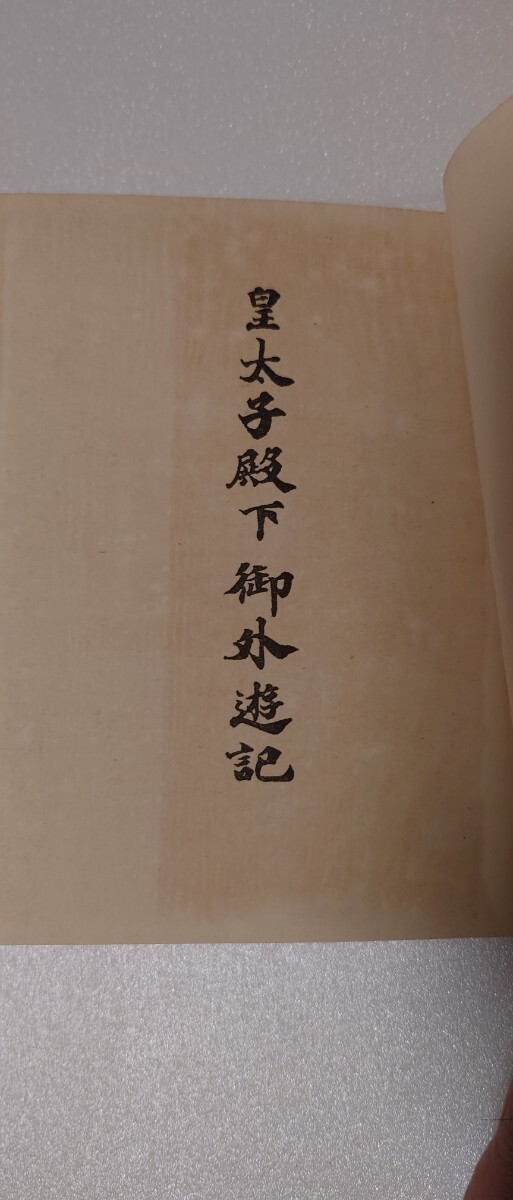 皇太子殿下御外遊記